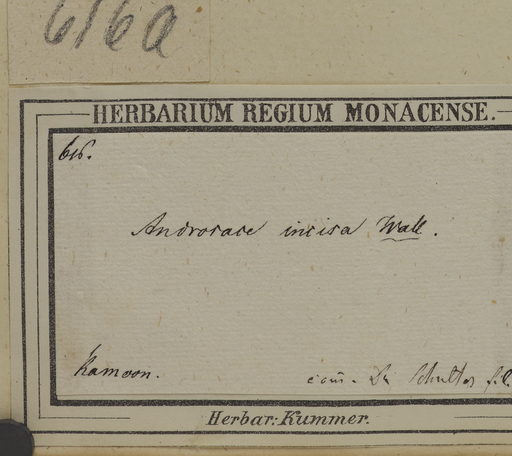 616a
HERBARIUM REGIUM MONACENSE.
616.
Androsace incisa Wall.
Kamoon.
com̄. Dr Schultes fil.
Herbar: Kummer.